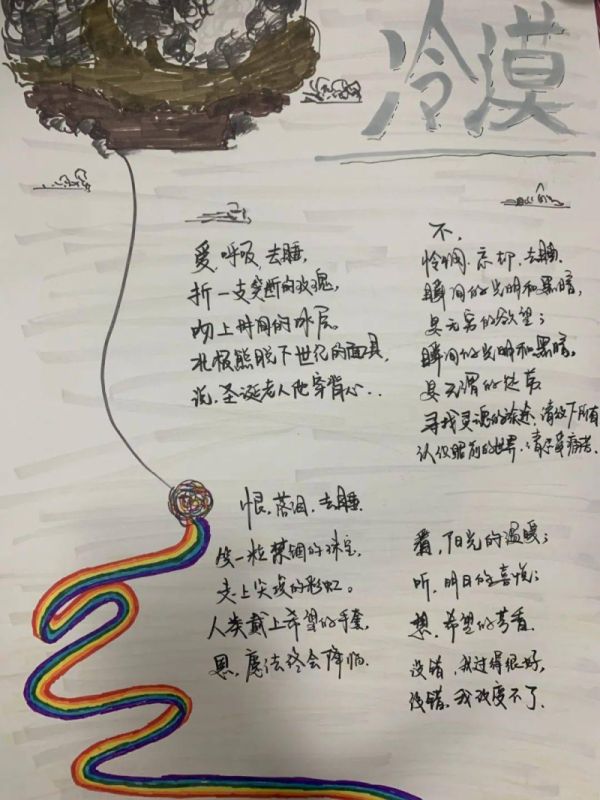 冷漠
爱,呼吸,去睡,
折一支突断的玫瑰,
吻上时间的冰层。
北极熊脱下世纪的面具,
说,圣诞老人他穿背心...
不,
怜悯.忘却.去睡.
瞬间的光明和黑暗,
是无穷的欲望;
瞬间的光明和黑暗.
是无谓的
寻找灵魂的旅途,请放下所有
认仅眼前的世界.请尽
恨.落泪.去睡.
一粒禁锢的珠宝,
走上尖线的彩虹。
人类戴上希望的手套,
恩,魔法终会降临.
看,阳光的温暖;
听,明日的喜悦;
想.希望的芳香.
没错,我过得很好,
没错.我改变不了.